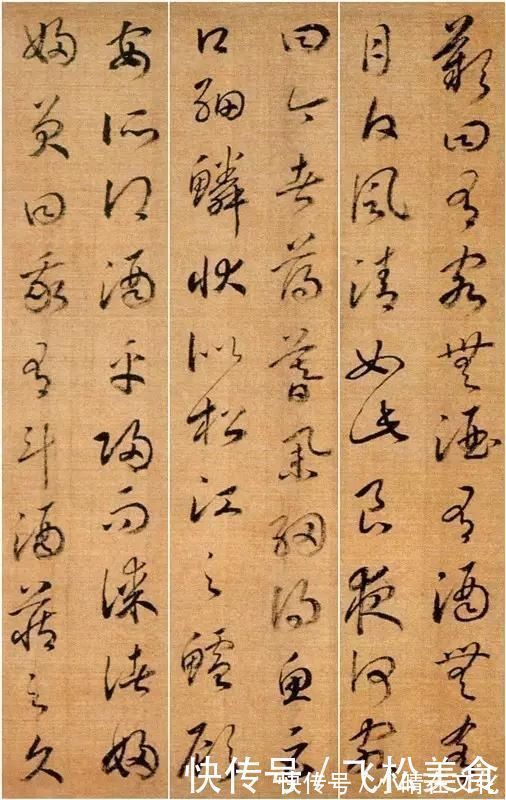 歎曰有客無酒有酒無肴
月白風清如此良夜何客
曰今者薄暮舉網得魚巨
口細鱗狀似松江之鱸顧
安所得酒乎歸而謀諸婦
婦曰我有斗酒藏之久
快传号/飞松美食
快传号